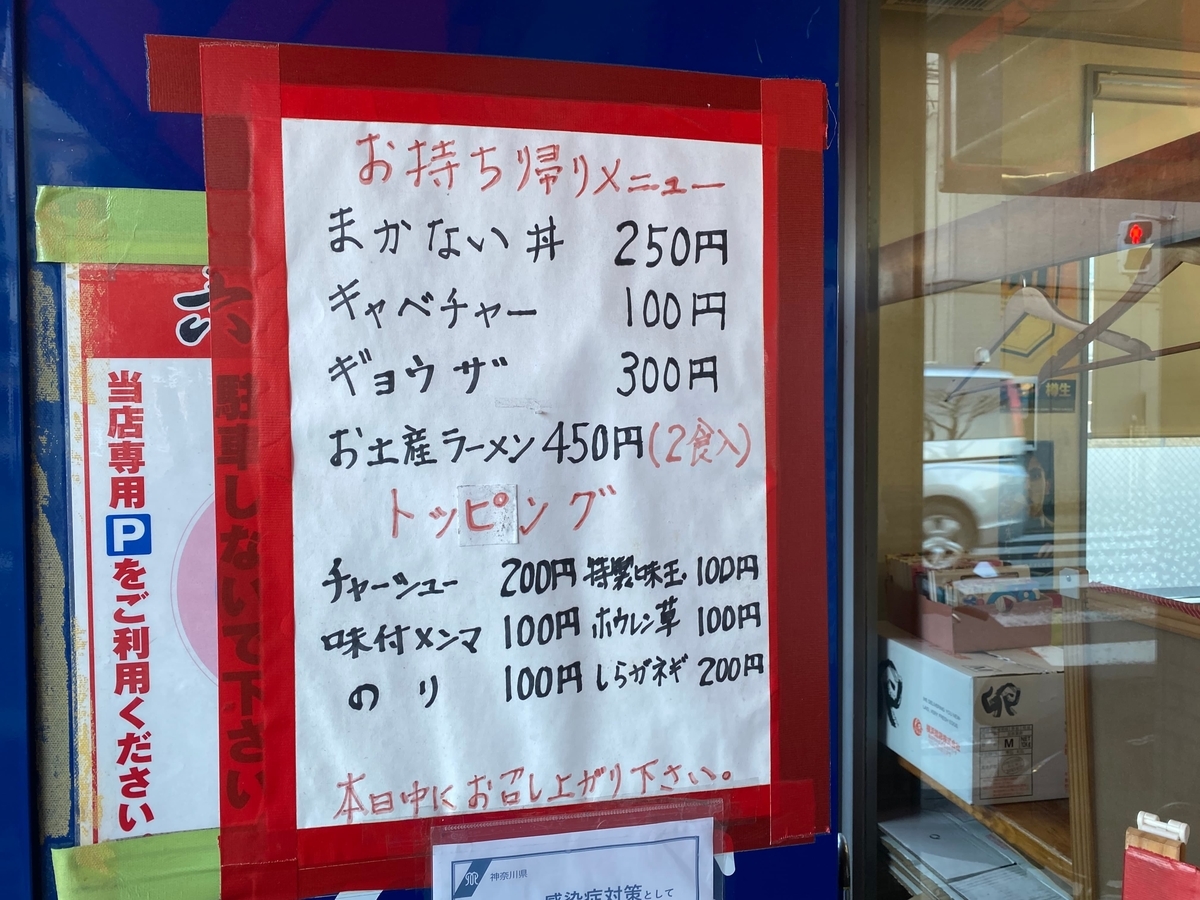 お持ち帰りメニュー
まかない丼 250円
キャベチャー 100円
ギョウザ 300円
お土産ラーメン 450円(2食入)
トッピング
チャーシュー 200円 特製味玉 100円
味付メンマ 100円 ホウレン草 100円
のり 100円 しらがネギ 200円
本日中にお召し上がり下さい。
六
駐車しないで下さい
当店専用Pをご利用ください
神奈川県
感染症対策として
樽生
卵
M